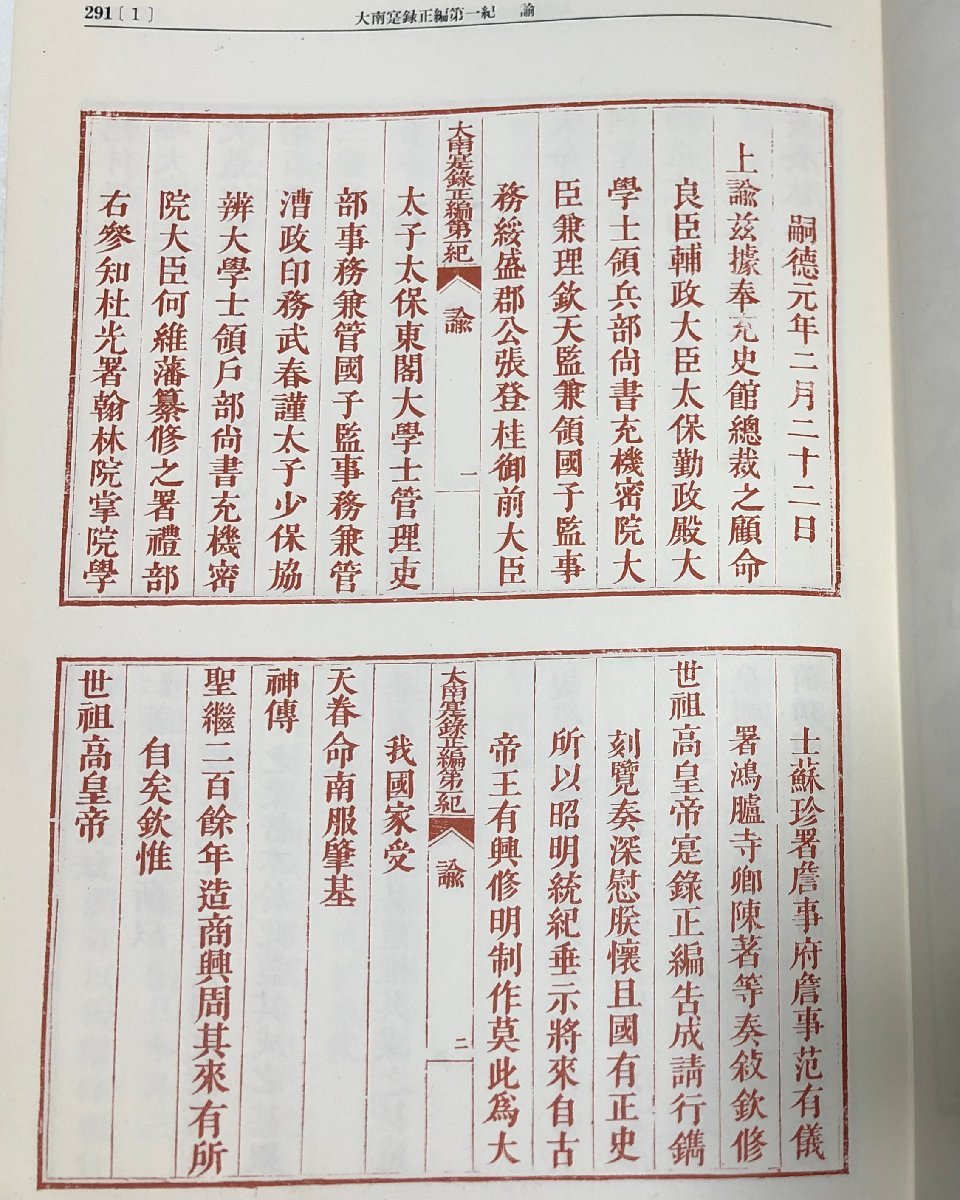 291〔1〕 大南寔錄正編第一紀 諭
嗣德元年二月二十二日
上諭茲據奉充史館總裁之顧命
良臣輔政大臣太保勤政殿大
學士領兵部尚書充機密院大
臣兼理欽天監兼領國子監事
務綏盛郡公張登桂御前大臣
大南寔錄正編第一紀 諭 一
太子太保東閣大學士管理吏
部事務兼管國子監事務兼管
漕政印務武春謹太子少保協
辨大學士領戶部尚書充機密
院大臣何維藩纂修之署禮部
右參知杜光署翰林院掌院學
士蘇珍署詹事府詹事范有儀
署鴻臚寺卿陳著等奏敍欽修
世祖高皇帝寔錄正編告成請行鐫
刻覽奏深慰朕懷且國有正史
所以昭明統紀垂示將來自古
帝王有興修明制作莫此為大
大南寔錄正編第一紀 諭 二
我國家受
天眷命南服肇基
神傳
聖繼二百餘年造商興周其來有所
自矣欽惟
世祖高皇帝